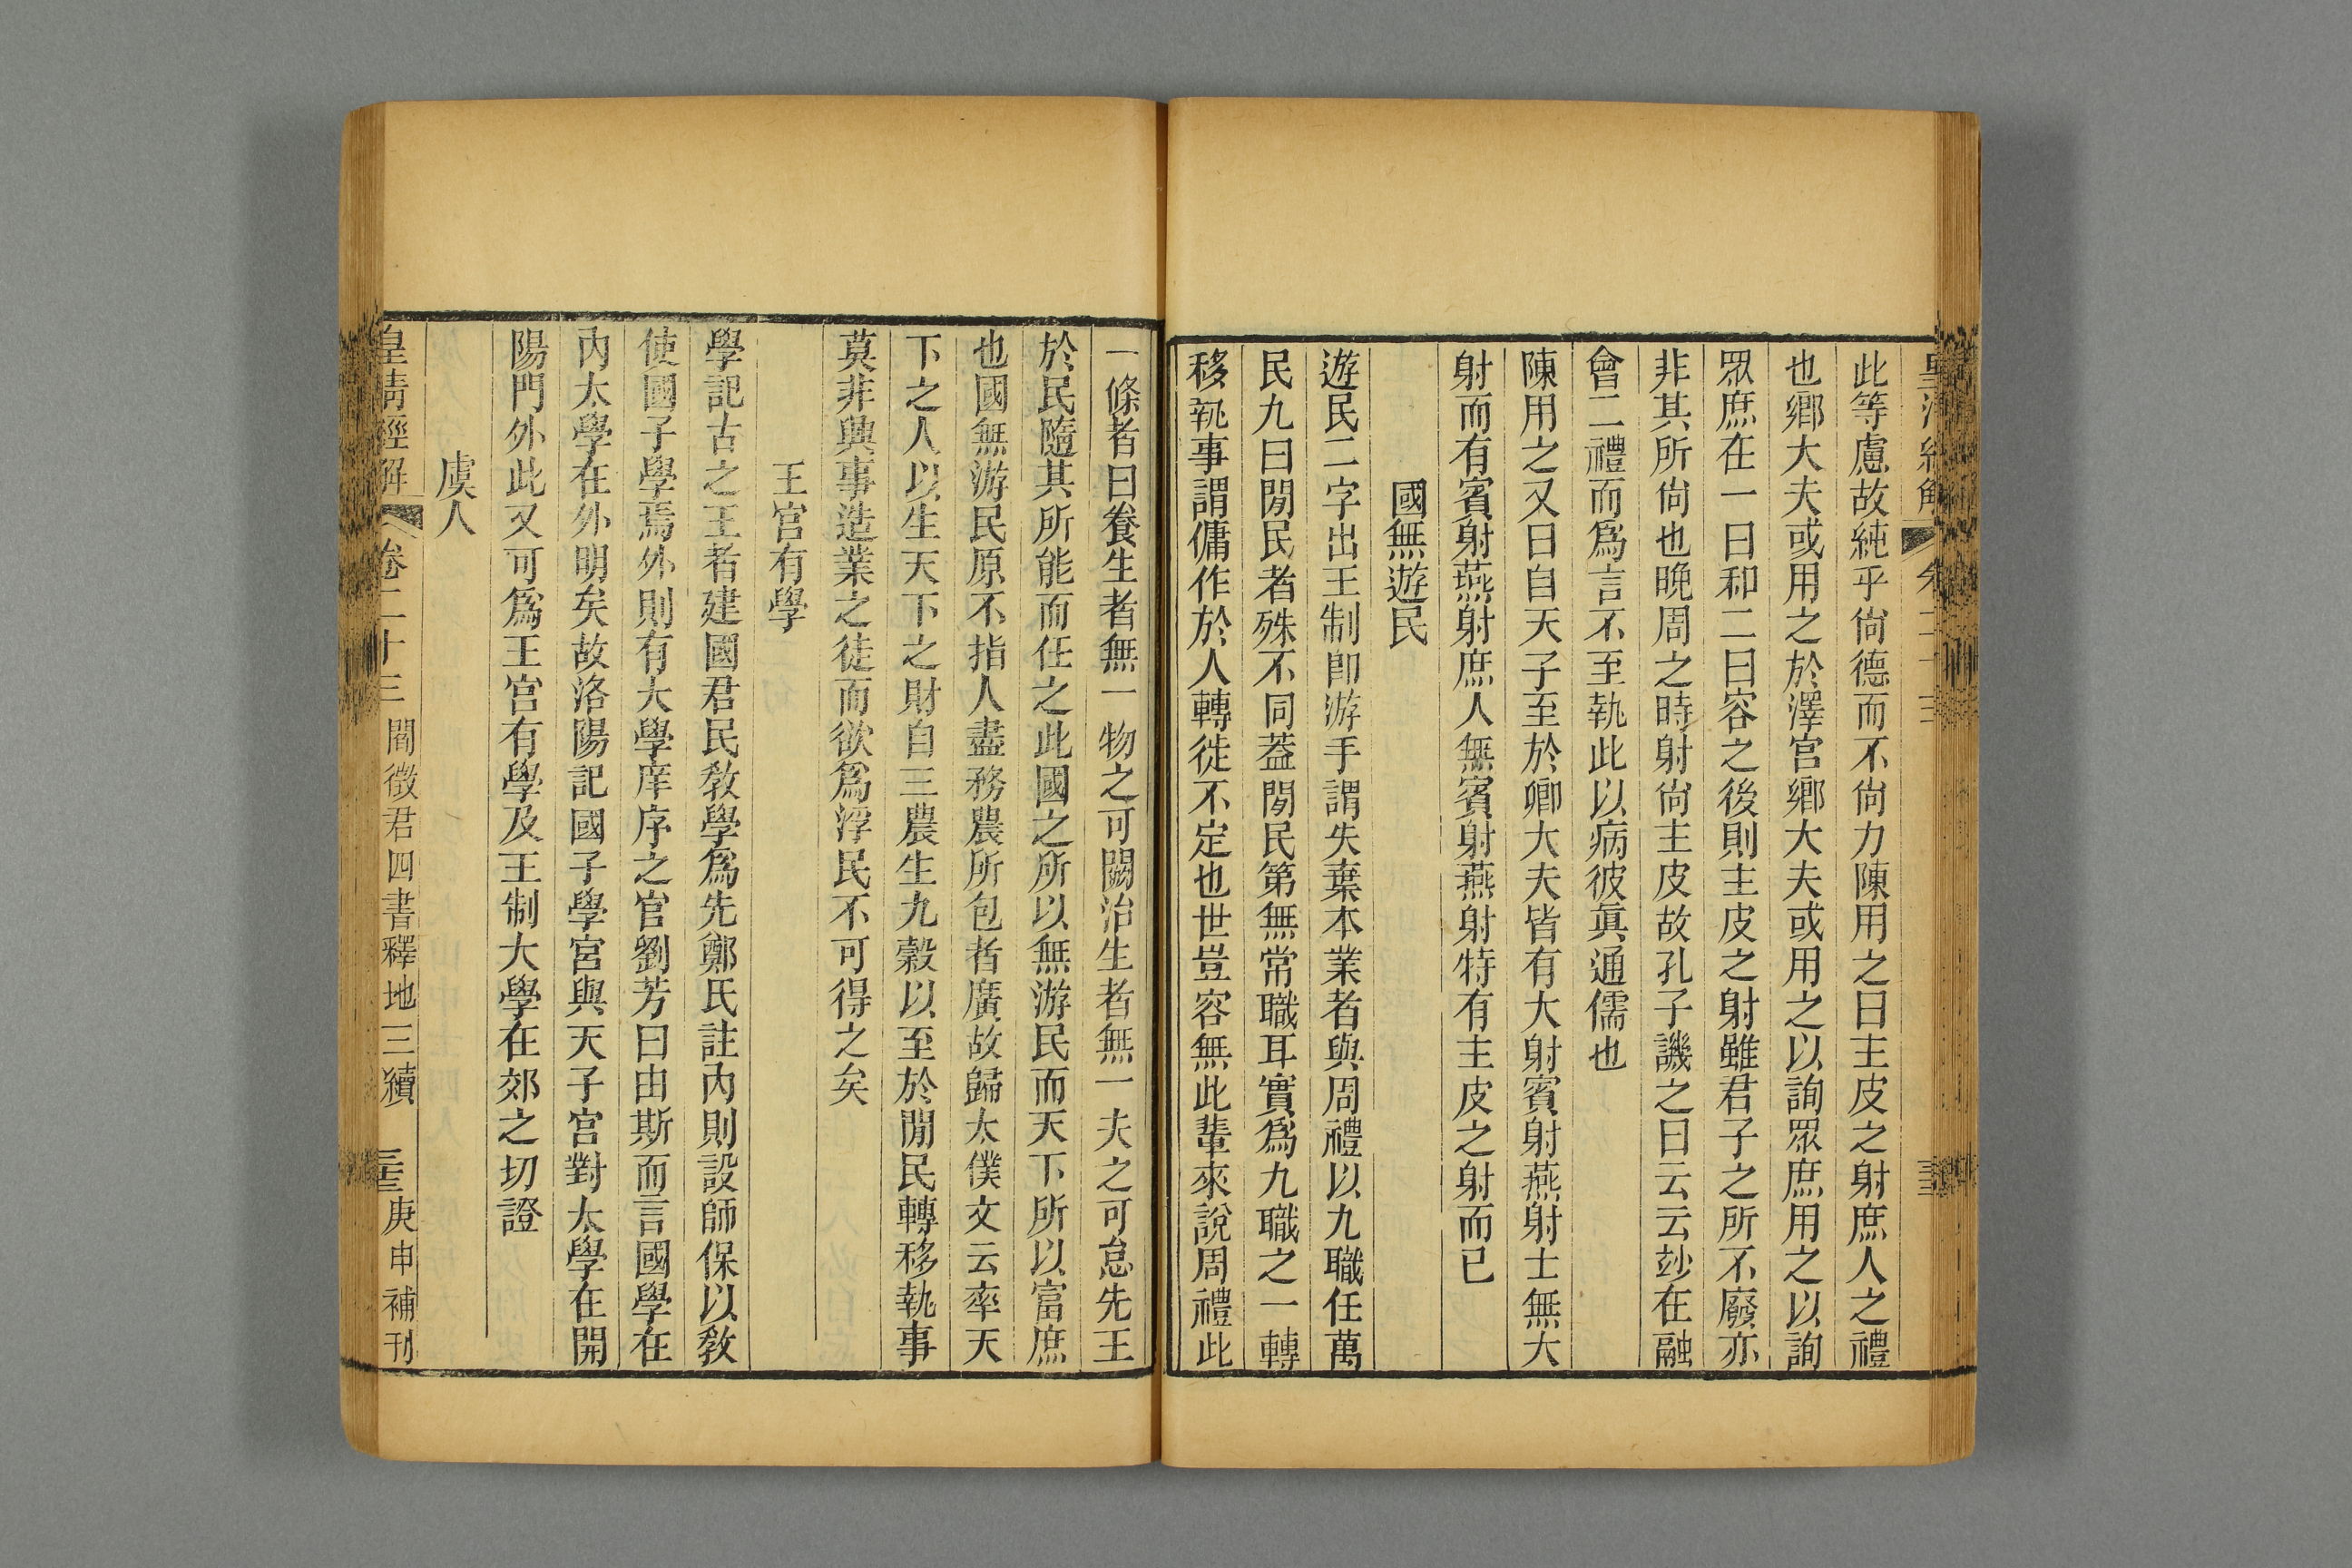 此等慮故純乎尙德而不尙力陳用之曰主皮之射庶人之禮
也鄉大夫或用之於澤宫鄉大夫或用之以詢眾庶用之以詢
眾庶在一曰和二曰容之後則主皮之射雖君子之所不廢亦
非其所尙也晚周之時射尙主皮故孔子譏之曰云云竗在融
會二禮而爲言不至執此以病彼眞通儒也
陳用之又曰自天子至於卿大夫皆有大射賓射燕射士無大
射而有賓射燕射庶人無賓射燕射特有主皮之射而已
國無遊民
遊民二字出王制卽游手謂失棄本業者與周禮以九職任萬
民九曰閒民者殊不同葢閒民第無常職耳實爲九職之一轉
移執事謂傭作於人轉徙不定也世豈容無此輩來說周禮此
一條者曰養生者無一物之可闕治生者無一夫之可怠先王
於民隨其所能而任之此國之所以無游民而天下所以富庶
也國無游民原不指人盡務農所包者廣故歸太僕文云率天
下之人以生天下之財自三農生九穀以至於閒民轉移執事
莫非興事造業之徒而欲爲浮民不可得之矣
王宫有學
學記古之王者建國君民敎學爲先鄭氏註內則設師保以敎
使國子學焉外則有大學庠序之官劉芳曰由斯而言國學在
內太學在外明矣故洛陽記國子學宮與天子宫對太學在開
陽門外此又可爲王宫有學及王制大學在郊之切證
虞人
皇淸經解 卷二十三 閻徵君四書釋地三續 庚申補刊